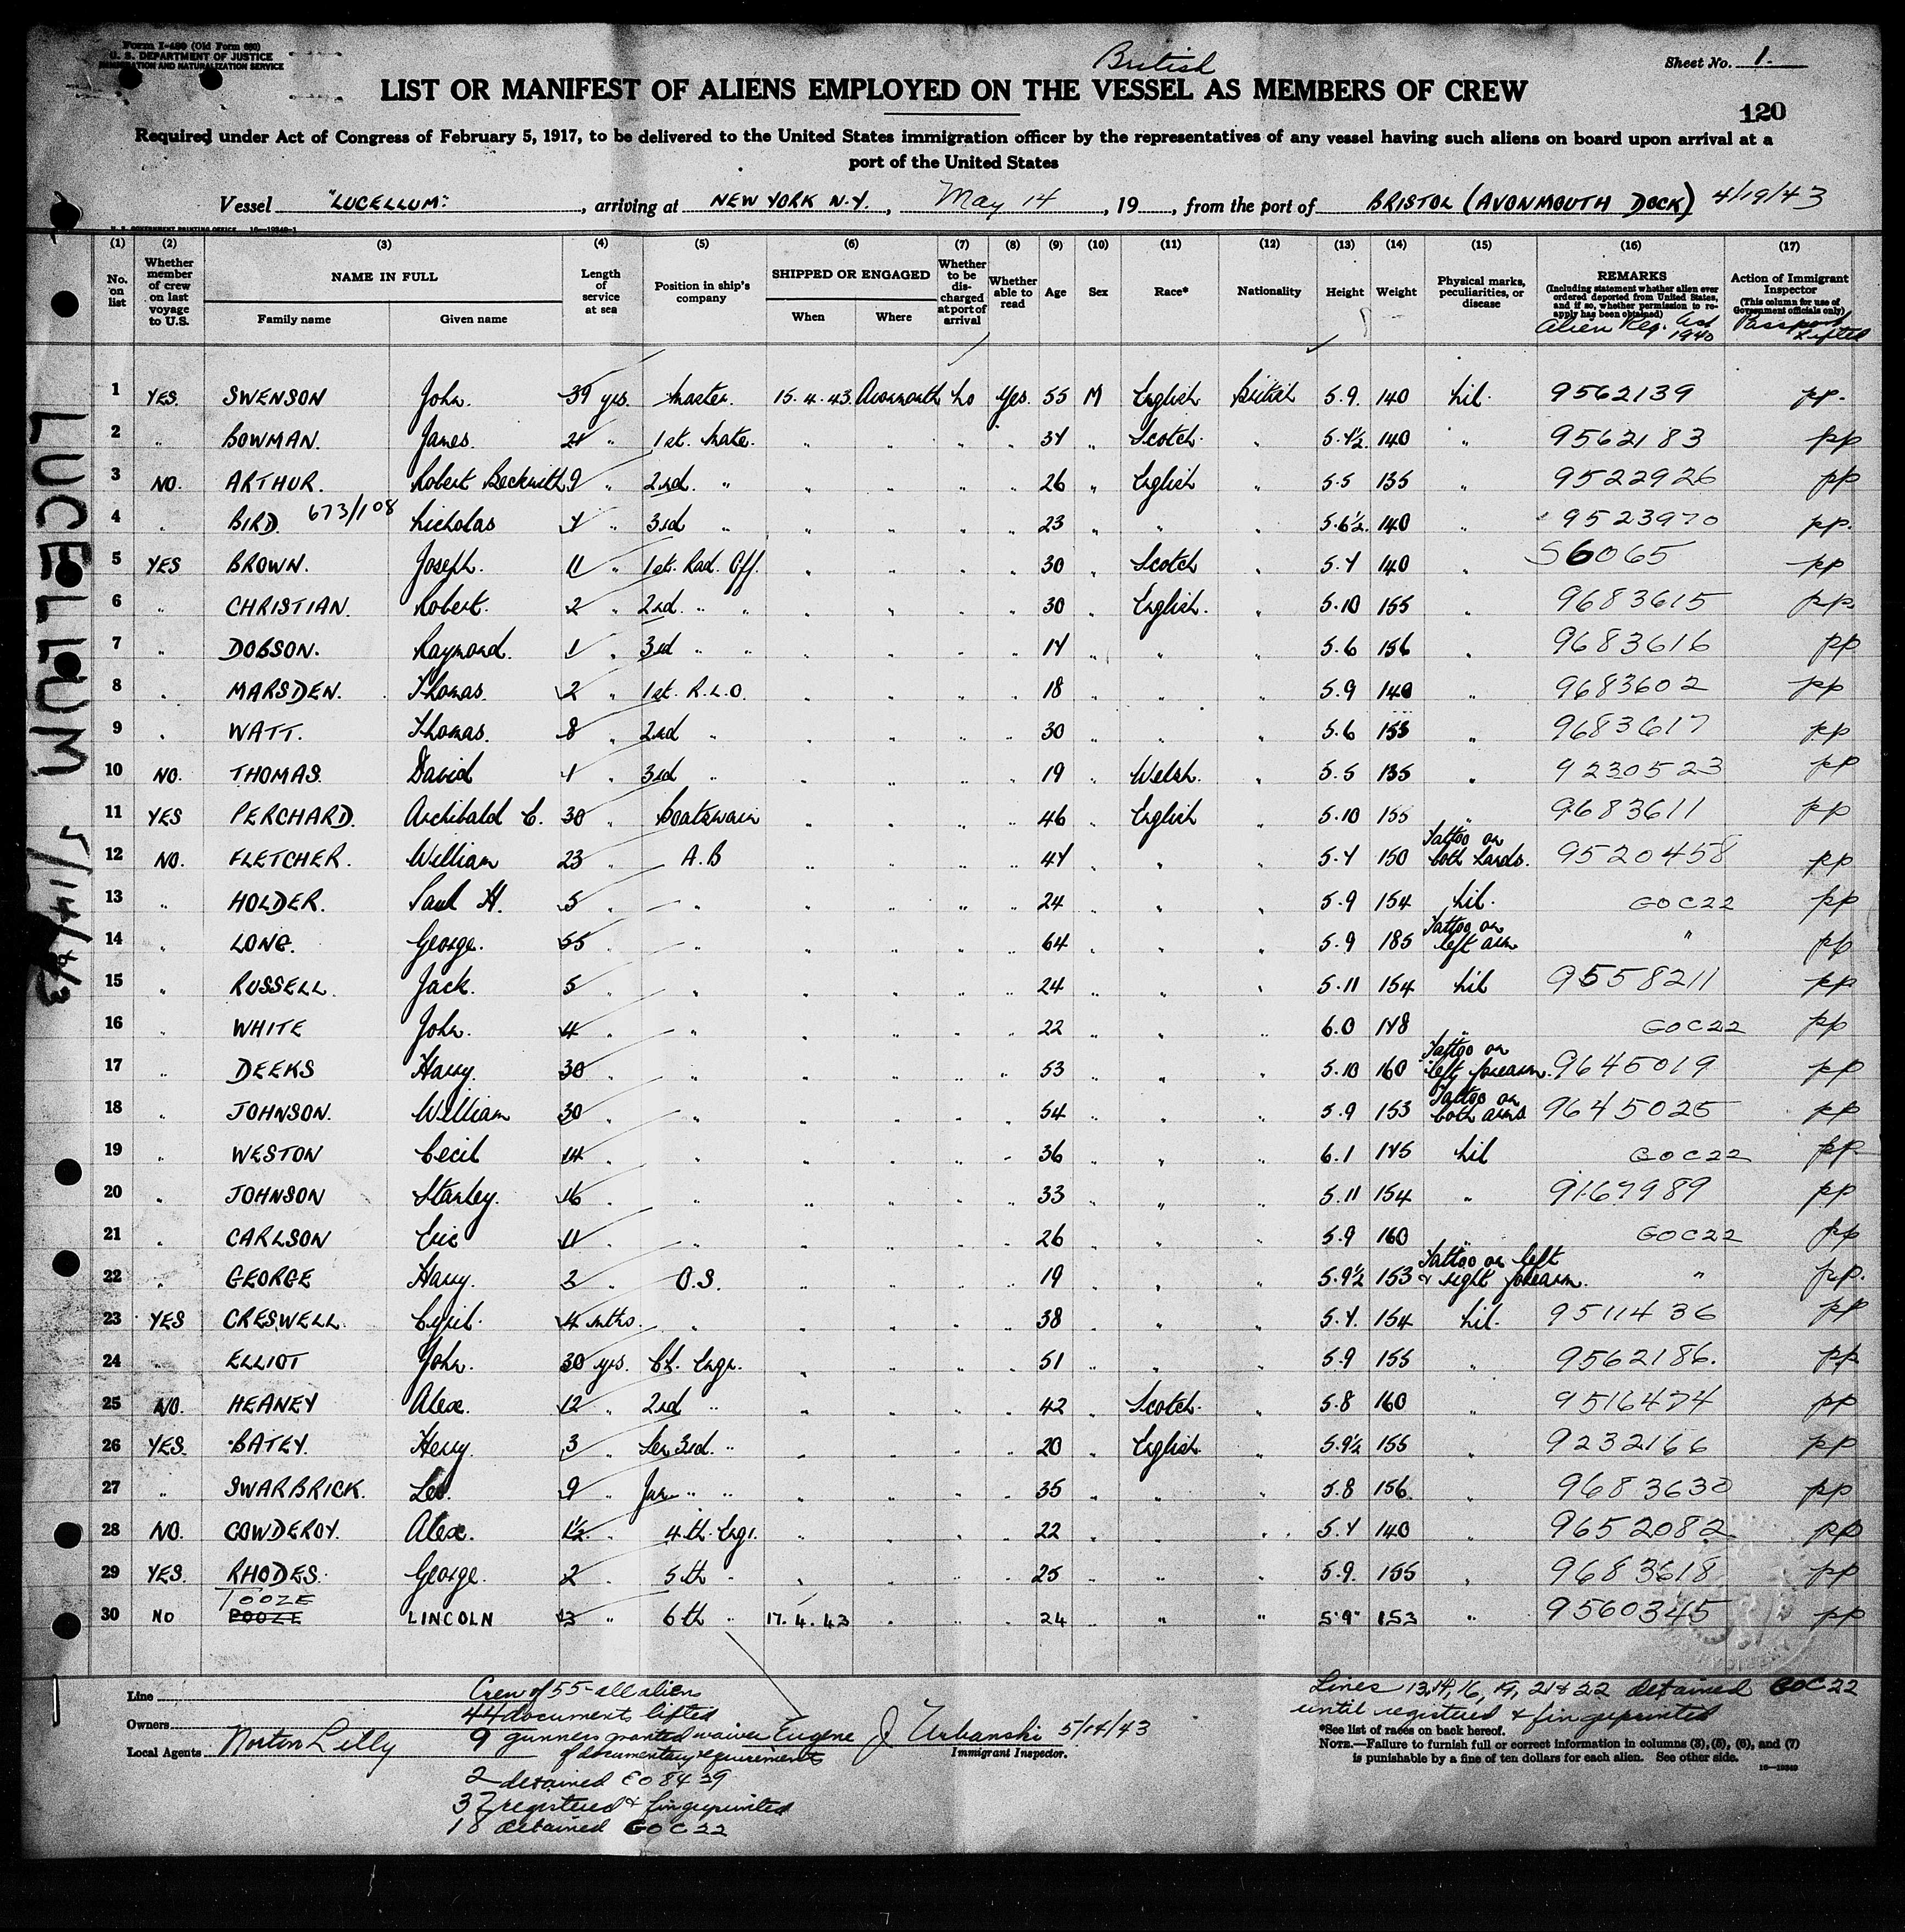 Form I-480 (Old Form 680)
U. S. DEPARTMENT OF JUSTICE
IMMIGRATION AND NATURALIZATION SERVICE
British
Sheet No. 1.
LIST OR MANIFEST OF ALIENS EMPLOYED ON THE VESSEL AS MEMBERS OF CREW
120
Required under Act of Congress of February 5, 1917, to be delivered to the United States immigration officer by the representatives of any vessel having such aliens on board upon arrival at a
port of the United States
Vessel "LUCELLUM", arriving at NEW YORK N.Y., May 14, 19, from the port of BRISTOL (AVONMOUTH DOCK) 4/19/43
(1) (2) (3) (4) (5) (6) (7) (8) (9) (10) (11) (12) (13) (14) (15) (16) (17)
No. on list
Whether member of crew on last voyage to U.S.
NAME IN FULL
Family name Given name
Length of service at sea
Position in ship's company
SHIPPED OR ENGAGED
When Where
Whether to be discharged at port of arrival
Whether able to read
Age
Sex
Race*
Nationality
Height
Weight
Physical marks, peculiarities, or disease
REMARKS
(Including statement whether alien ever ordered deported from United States, and if so, whether permission to reapply has been obtained)
Alien Reg. Act 1940
Action of Immigrant Inspector
(This column for use of Government officials only)
Passport Lifted
1 YES. SWENSON John. 39 yrs. Master. 15.4.43 Avonmouth No Yes. 55 M English British 5.9. 140 Nil. 9562139 pp.
2 " BOWMAN. James. 21 " 1st. Mate. " " " " 34 " Scotch. " 5.4½ 140 " 9562183 pp
3 NO. ARTHUR. Robert Beckwith 9 " 2nd. " " " " " 26 " English " 5.5 135 " 9522926 pp
4 " BIRD. 673/108 Nicholas 4 " 3rd " " " " " 23 " " " 5.6½ 140 " 9523970 pp.
5 YES BROWN. Joseph. 11 " 1st. Rad. Off. " " " " 30 " Scotch " 5.4 140 " 56065 pp
6 " CHRISTIAN. Robert. 2 " 2nd. " " " " " " 30 " English. " 5.10 155 " 9683615 pp.
7 " DOBSON. Raymond. 1 " 3rd " " " " " " 17 " " " 5.6 156 " 9683616 pp
8 " MARSDEN. Thomas. 2 " 1st. R.L.O. " " " " 18 " " " 5.9 140 " 9683602 pp
9 " WATT. Thomas. 8 " 2nd " " " " " 30 " " " 5.6 155 " 9683617 pp
10 NO. THOMAS. David 1 " 3rd " " " " " 19 " Welsh. " 5.5 135 " 9230523 pp
11 YES PERCHARD. Archibald C. 30 " Boatswain " " " " 46 " English " 5.10 155 " 9683611 pp
12 NO. FLETCHER. William 23 " A.B " " " " 44 " " " 5.4 150 Tattoo on both hands. 9520458 pp
13 " HOLDER. Paul H. 5 " " " " " " 24 " " " 5.9 154 Nil. GOC22 pp
14 " LONG. George. 55 " " " " " " 64 " " " 5.9 185 Tattoo on left arm " pp
15 " RUSSELL. Jack. 5 " " " " " " 24 " " " 5.11 154 Nil 9558211 pp
16 " WHITE John. 4 " " " " " " 22 " " " 6.0 148 " GOC22 pp
17 " DEEKS Harry. 30 " " " " " " 53 " " " 5.10 160 Tattoo on left forearm. 9645019 pp
18 " JOHNSON. William 30 " " " " " " 54 " " " 5.9 153 Tattoo on both arms 9645025 pp
19 " WESTON Cecil 14 " " " " " " 36 " " " 6.1 145 Nil GOC22 pp.
20 " JOHNSON Stanley. 16 " " " " " " 33 " " " 5.11 154 " 9167989 pp
21 " CARLSON Eric 11 " " " " " " 26 " " " 5.9 160 " GOC22 pp
22 " GEORGE Harry. 3 " O.S. " " " " 19 " " " 5.9½ 153 Tattoo on left & right forearm. " pp.
23 YES CRESWELL. Cyril. 4 mths. " " " " " 38 " " " 5.4. 154 Nil. 9511436 pp
24 " ELLIOT John. 30 yrs. Ch. Engr. " " " " 51 " " " 5.9 155 " 9562186. pp
25 NO. HEANEY Alex. 12 " 2nd " " " " " 42 " Scotch. " 5.8 160 " 9516474 pp
26 YES. BATEY. Henry. 3 " Sen 3rd. " " " " " 20 " English. " 5.9½ 155 " 9232166 pp
27 " SWARBRICK. Leo. 9 " Jun " " " " " " 35 " " " 5.8 156. " 9683630 pp
28 NO. COWDEROY. Alex. 1½ " 4th. Engr. " " " " 22 " " " 5.4 140 " 9652082 pp
29 YES. RHODES. George. 2 " 5th " " " " " 25 " " " 5.9. 155 " 9683618 pp
TOOZE
30 NO POOZE LINCOLN 13 " 6th " 17.4.43 " " " 24 " " " 5.9" 153 " 9560345 pp
LUCELLUM 5/14/43
Line
Owners
Local Agents Norton Lilly
Crew of 55 - all aliens
44 documents lifted
9 gunners granted waiver
of documentary requirements
2 detained EO 8429
37 registered & fingerprinted
18 detained GOC 22
Eugene J Urbanski 5/14/43
Immigrant Inspector.
Lines 13, 14, 16, 19, 21 & 22 detained GOC 22
until registered & fingerprinted
*See list of races on back hereof.
NOTE.—Failure to furnish full or correct information in columns (3), (5), (6), and (7)
is punishable by a fine of ten dollars for each alien. See other side.
16—19349